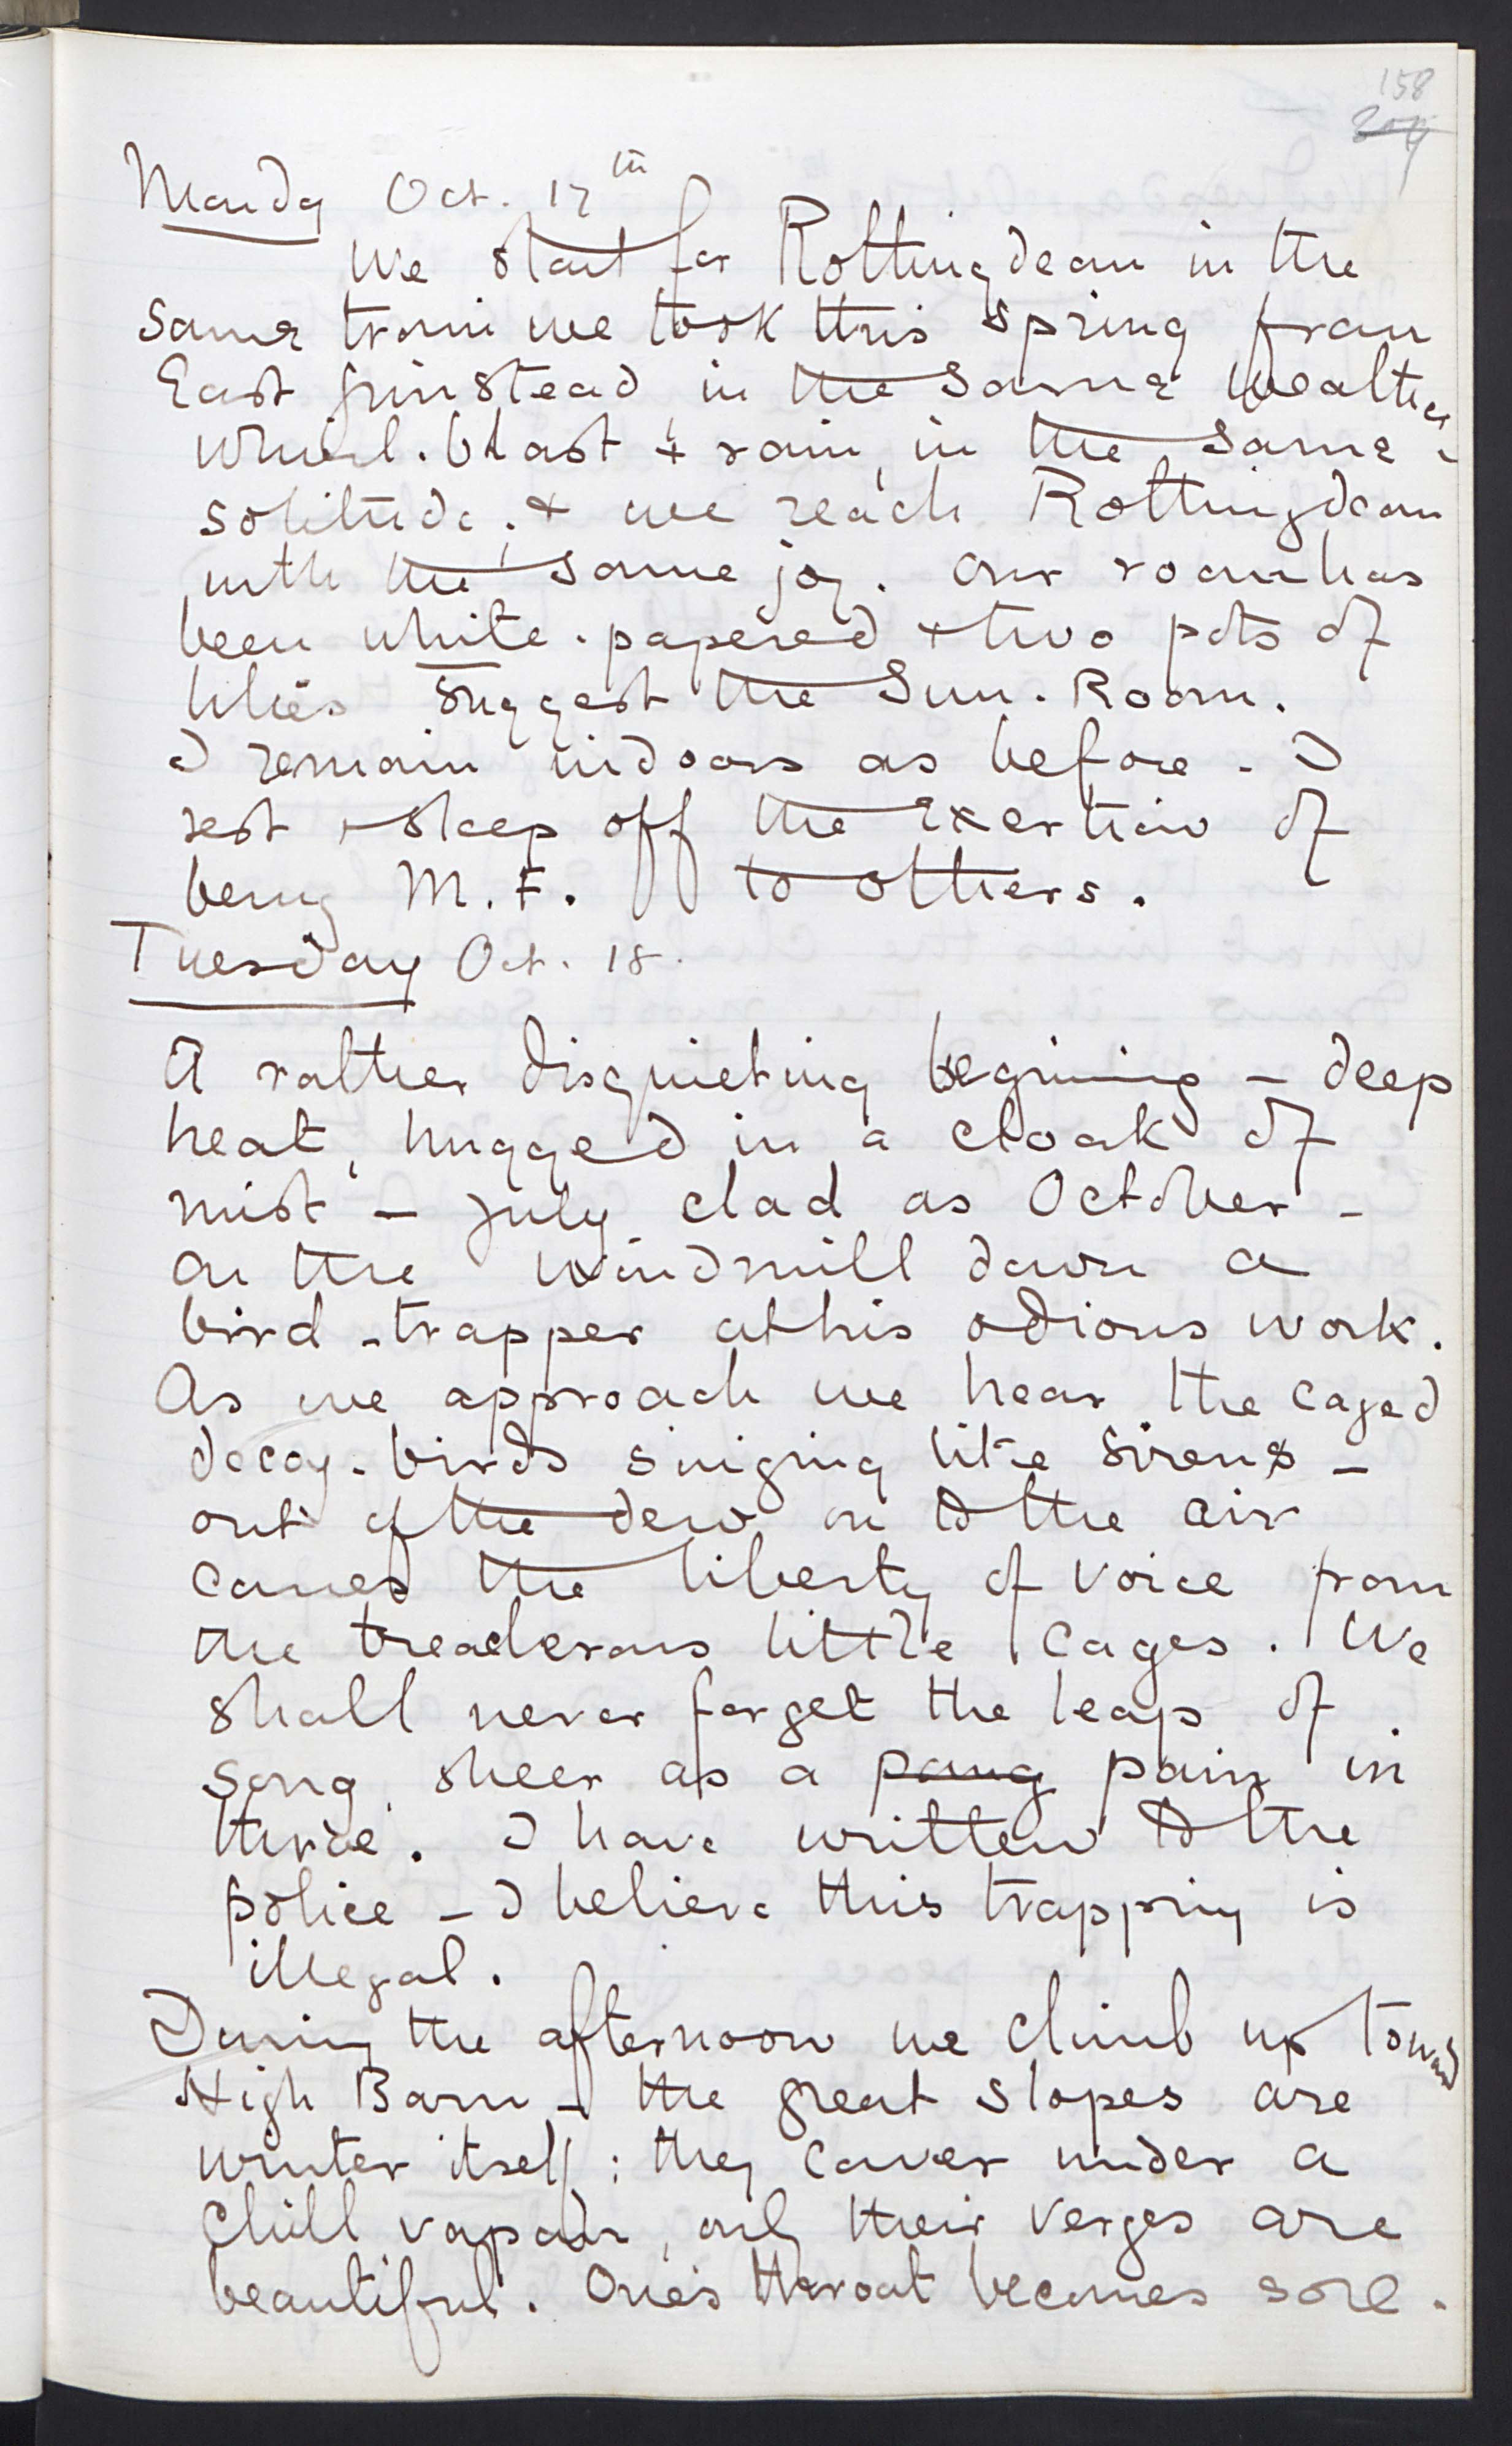 158
204
Monday Oct. 17th
We start for Rottingdean in the
same train we took this spring from
East Grinstead in the same weather
whirl-blast & rain, in the same
solitude, & we reach Rottingdean
with the same joy. Our room has
been white-papered & two pots of
lilies suggest the Sun-Room.
I remain indoors as before. I
rest & sleep off the exertion of
being M.F. to others.
Tuesday Oct. 18.
A rather disquieting beginning – deep
heat, hugged in a cloak of
mist – July clad as October –
On the windmill down a
bird-trapper at his odious work.
As we approach we hear the caged
decoy-birds singing like Sirens –
out of the dew on to the air
comes the liberty of voice from
the treacherous little cages. We
shall never forget the leaps of
song sheer as a pang pain in
throe. I have written to the
police – I believe this trapping is
illegal.
During the afternoon we climb up toward
High Barn – the great slopes are
winter itself; they cower under a
chill vapour, only their verges are
beautiful. One's throat becomes sore.